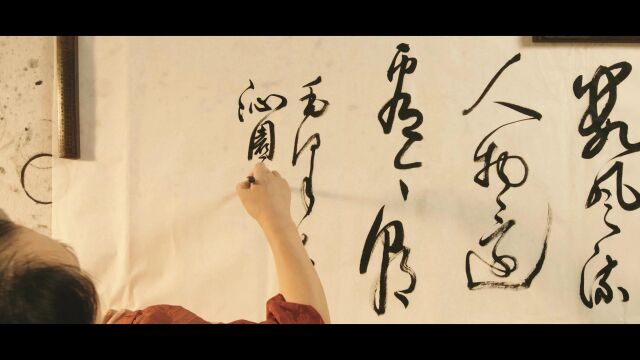 数风流
人物还
看今朝
毛泽东
沁園